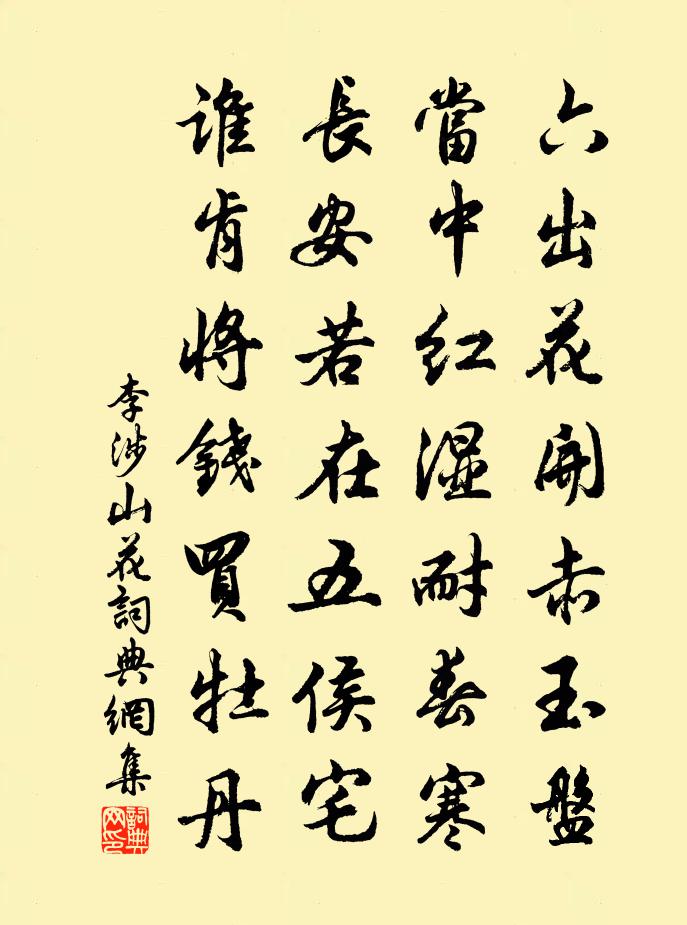 六出花開赤玉盤
當中紅濕耐春寒
長安若在五侯宅
誰肯將錢買牡丹
李涉山花詞典網集
詞典網印